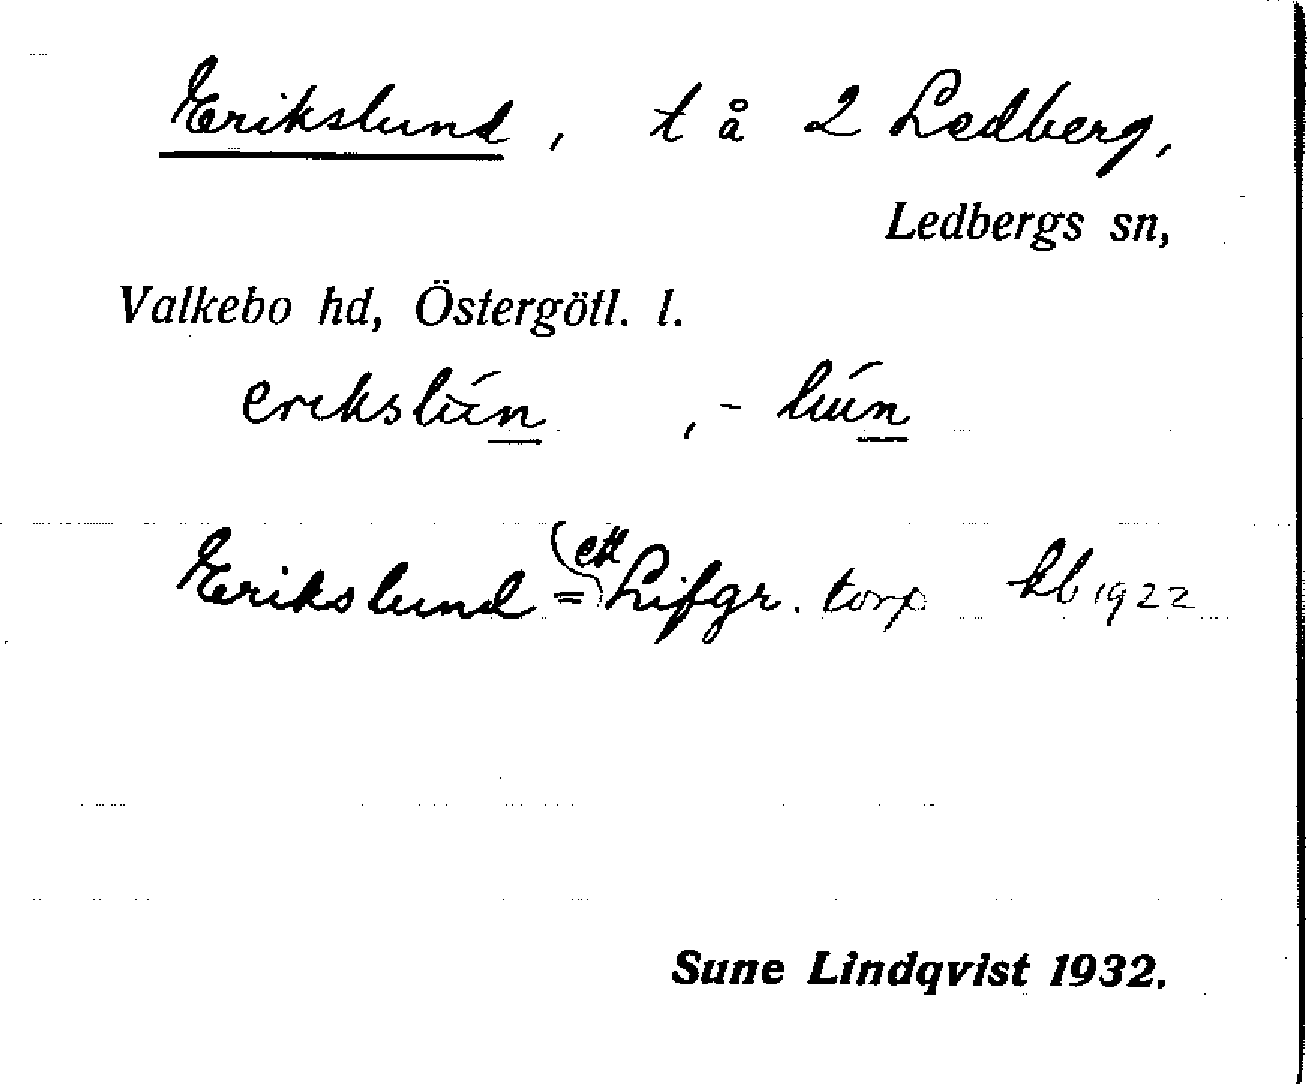 Erikslund, t å 2 Ledberg,
Ledbergs sn,
Valkebo hd, Östergötl. l.
Erikslund = ett Lifgr. torp kb 1922
Sune Lindqvist 1932.